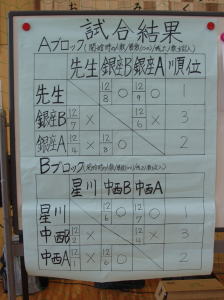 試合結果
Aブロック
先生 銀座B 銀座A 順位
先生 12 8 ○ 12 9 ○ 1
銀座B 12 7 × 12 6 × 3
銀座A 12 4 × ○ 2
Bブロック
星川 中西B 中西A
星川 12 6 ○ 12 7 ○ 1
中西B 12 2 × × 3
中西A × 12 6 ○ 2